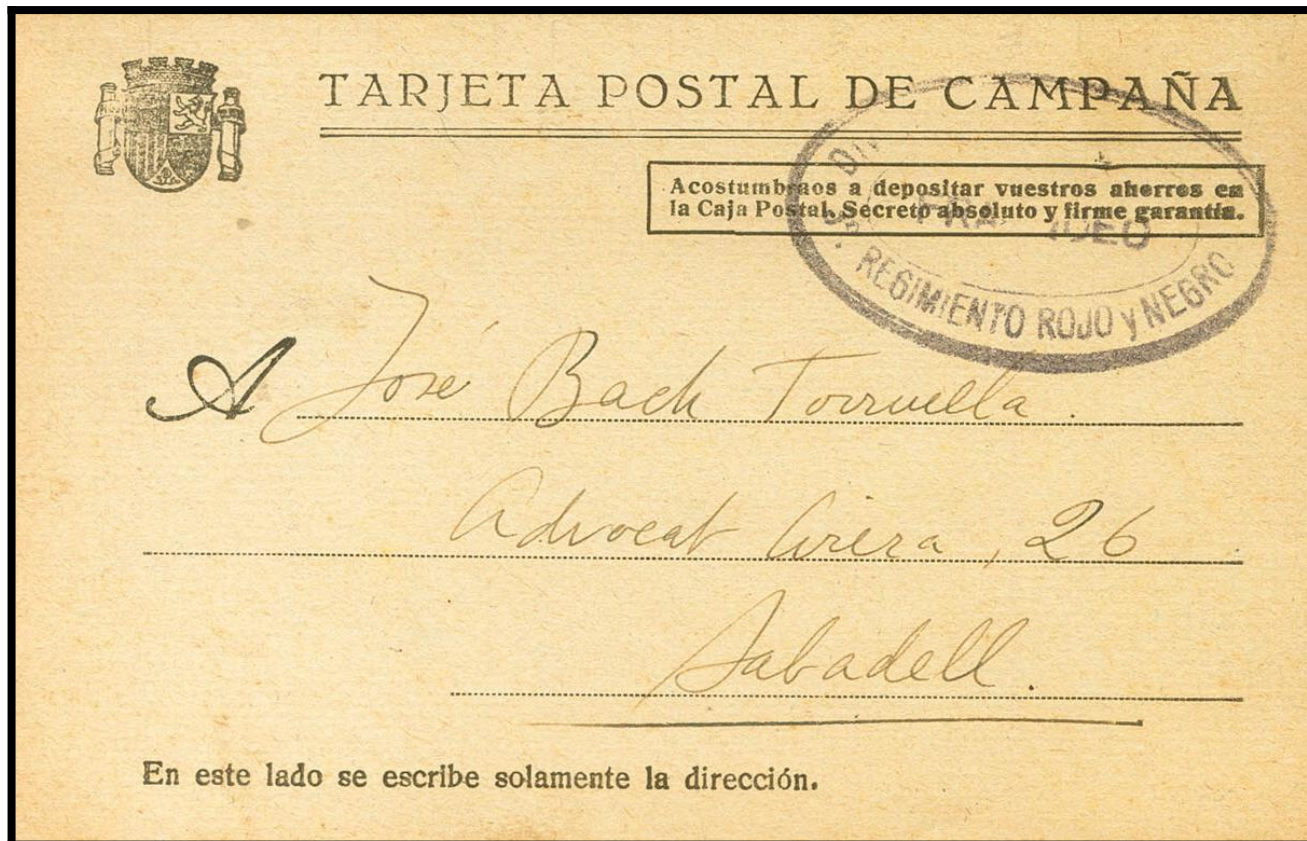 TARJETA POSTAL DE CAMPAÑA
Acostumbraos a depositar vuestros ahorros en
la Caja Postal. Secreto absoluto y firme garantía.
REGIMIENTO ROJO y NEGRO
A José Bach Torruella.
Advocat Cirera, 26
Sabadell.
En este lado se escribe solamente la dirección.